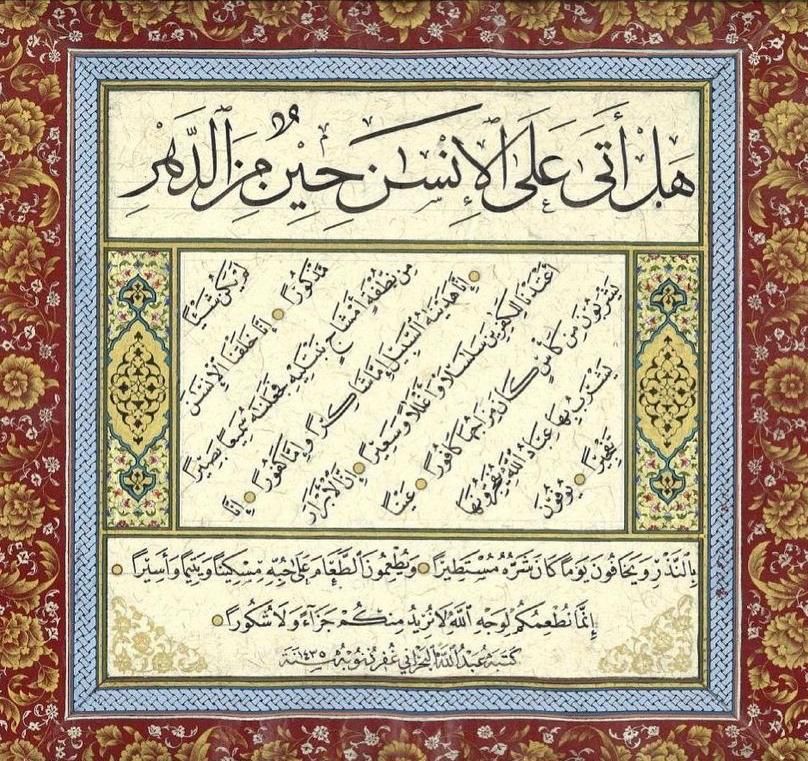 هَلْ أَتَىٰ عَلَى ٱلْإِنسَٰنِ حِينٌ مِّنَ ٱلدَّهْرِ
لَمْ يَكُن شَيْـًٔا
مَّذْكُورًا ○ إِنَّا خَلَقْنَا ٱلْإِنسَٰنَ
مِن نُّطْفَةٍ أَمْشَاجٍ نَّبْتَلِيهِ فَجَعَلْنَٰهُ سَمِيعًۢا بَصِيرًا
○ إِنَّا هَدَيْنَٰهُ ٱلسَّبِيلَ إِمَّا شَاكِرًا وَإِمَّا كَفُورًا ○ إِنَّآ
أَعْتَدْنَا لِلْكَٰفِرِينَ سَلَٰسِلَا۟ وَأَغْلَٰلًا وَسَعِيرًا ○ إِنَّ ٱلْأَبْرَارَ
يَشْرَبُونَ مِن كَأْسٍ كَانَ مِزَاجُهَا كَافُورًا ○ عَيْنًا
يَشْرَبُ بِهَا عِبَادُ ٱللَّهِ يُفَجِّرُونَهَا
تَفْجِيرًا ○ يُوفُونَ
بِٱلنَّذْرِ وَيَخَافُونَ يَوْمًا كَانَ شَرُّهُۥ مُسْتَطِيرًا ○ وَيُطْعِمُونَ ٱلطَّعَامَ عَلَىٰ حُبِّهِۦ مِسْكِينًا وَيَتِيمًا وَأَسِيرًا ○
إِنَّمَا نُطْعِمُكُمْ لِوَجْهِ ٱللَّهِ لَا نُرِيدُ مِنكُمْ جَزَآءً وَلَا شُكُورًا ○
كتبه عبدالله البحراني غفر ذنوبه سنة ١٤٣٥